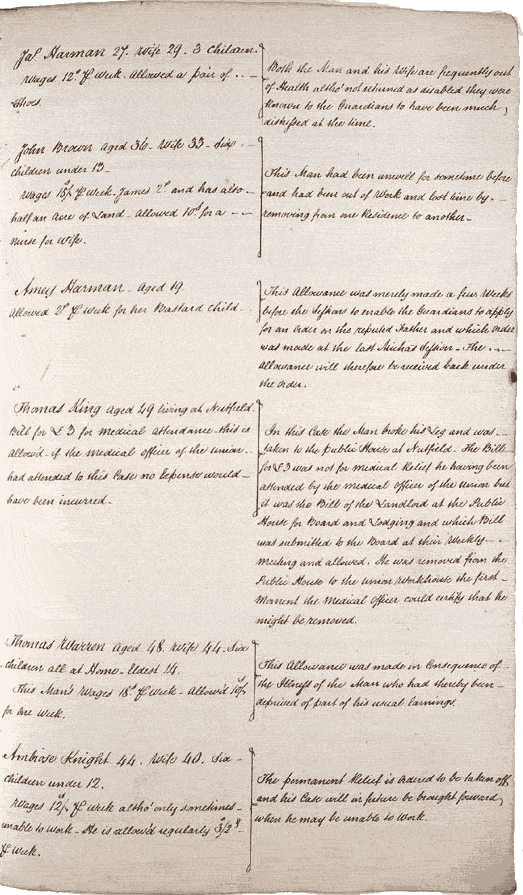 Jas. Harman 27. Wife 29. 3 Children.
Wages 12s. ℔ Week. Allowed a pair of
Shoes.
Both the Man and his Wife are frequently out
of Health altho' not returned as disabled they were
known to the Guardians to have been much
distressed at the time.
John Brown aged 36. Wife 33. Six
children under 13
Wages 15s/. ℔ Week. James 2s. and has also
half an Acre of Land. Allowed 10d for a
nurse for Wife.
This Man had been unwell for sometime before
and had been out of Work and lost time by
removing from one Residence to another.
Amey Harman. aged 19.
Allowed 2s. ℔ Week for her Bastard Child.
This Allowance was merely made a few Weeks
before the Sessions to enable the Guardians to apply
for an Order on the reputed Father and which Order
was made at the last Michas. Session. The
Allowance will therefore be received back under
the Order.
Thomas King aged 49 living at Nutfield
Bill for £3 for medical attendance this is
allow'd. if the medical officer of the union
had attended to this Case no Expense would
have been incurred.
In this Case the Man broke his Leg and was
taken to the public House at Nutfield. The Bill
for £3 was not for medical Relief he having been
attended by the medical officer of the Union but
it was the Bill of the Landlord at the Public
House for Board and Lodging and which Bill
was submitted to the Board at their Weekly
meeting and allowed. He was removed from the
Public House to the union Workhouse the first
Moment the Medical Officer could certify that he
might be removed.
Thomas Warren aged 48. Wife 44. Six
children all at Home. Eldest 14.
This Man's Wages 18s. ℔ Week. Allow'd 10s/.
for one Week.
This Allowance was made in Consequence of
the Illness of the Man who had thereby been
deprived of part of his usual Earnings.
Ambrose Knight 44. Wife 40. Six
children under 12.
Wages 12s/. ℔ Week altho' only sometimes
unable to Work. He is allow'd regularly 3/2d.
℔ Week.
The permanent Relief is ordered to be taken off
and his Case will in future be brought forward
when he may be unable to Work.